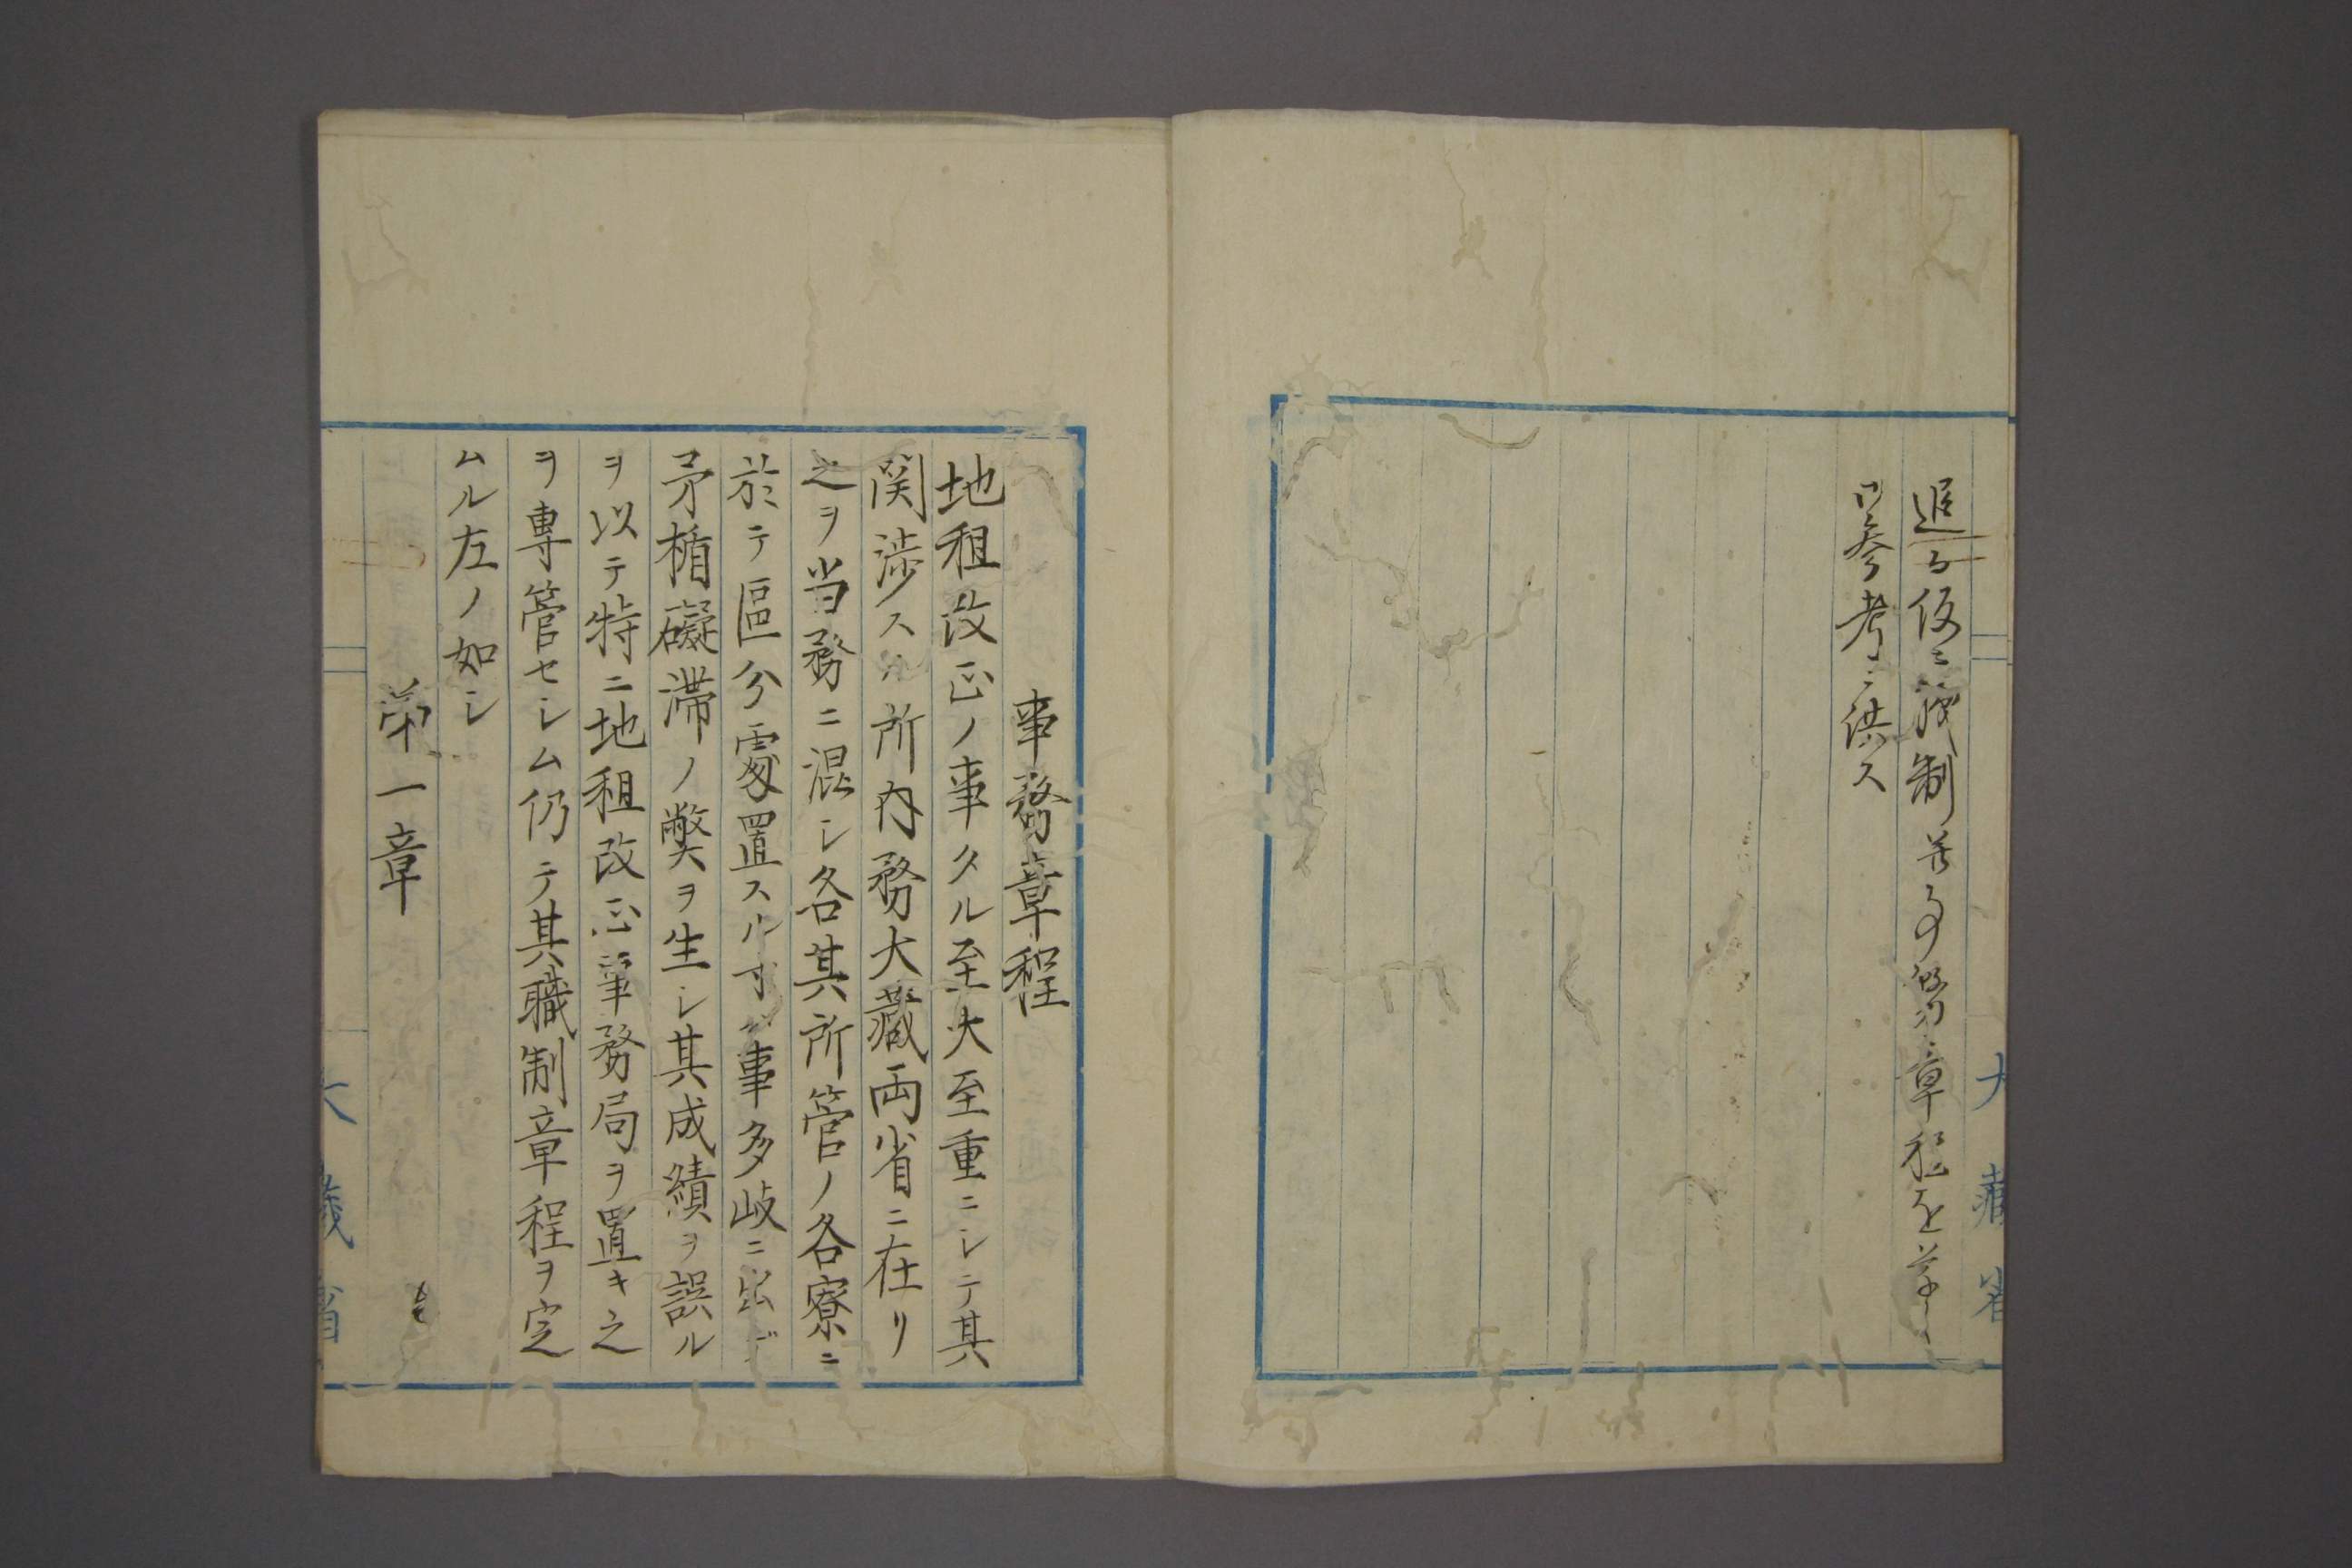 追而仮ニ職制並事務章程を草し
御参考ニ供ス
大藏省
事務章程
地租改正ノ事タル至大至重ニシテ其
関渉スル所内務大藏両省ニ在リ
之ヲ当務ニ混シ各其所管ノ各寮ニ
於テ區分處置スル寸ハ事多岐ニ出デ
矛楯礙滞ノ弊ヲ生シ其成績ヲ誤ル
ヲ以テ特ニ地租改正事務局ヲ置キ之
ヲ専管セシム仍テ其職制章程ヲ定
ムル左ノ如シ
第一章
大藏省